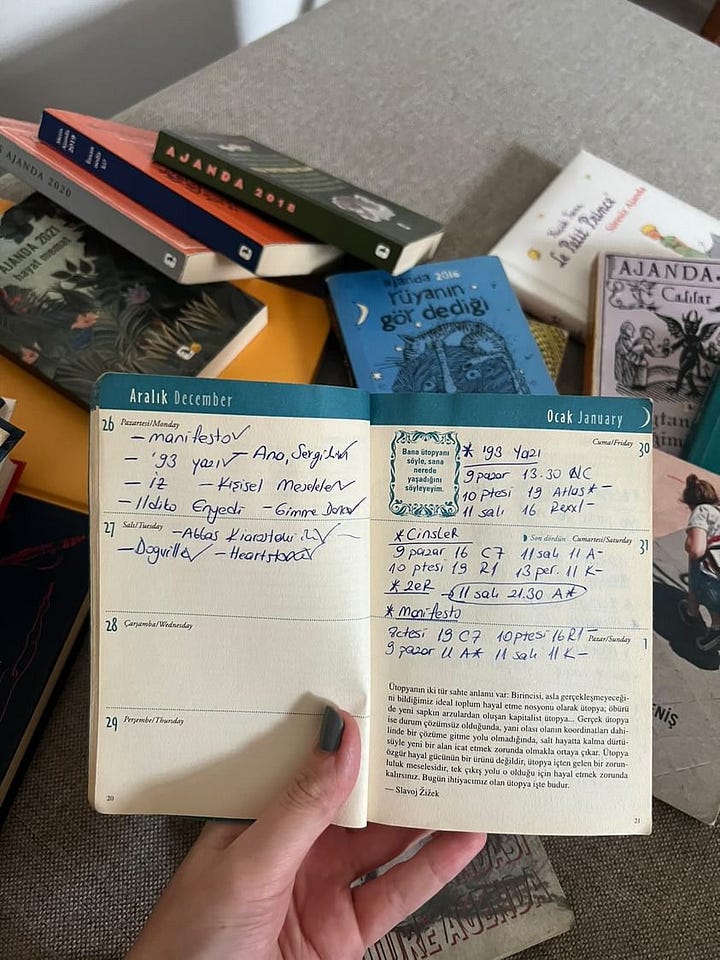 AJANDA 2020
Metis Ajanda 2019
İnsan nedir ki?
AJANDA 2018
AJANDA 2021
hayat memat
ajanda 2016
rüyanın
gör dediği
Le Petit Prince
AJANDA
Cadılar
Aralık December
26 Pazartesi/Monday
- manifesto✓
- '93 yazı✓ - Ana, Sergi
- iz - Kişisel Meseleler✓
- Ildiko Enyedi - Gimme Danger✓
27 Salı/Tuesday - Abbas Kiarostami
- Dogville✓ - Heartstone✓
28 Çarşamba/Wednesday
29 Perşembe/Thursday
20
Ocak January
Cuma/Friday 30
Bana ütopyanı
söyle, sana
nerede
yaşadığını
söyleyeyim.
* '93 Yazı
9 pazar 13.30 NC
10 ptesi 19 Atlas* -
11 salı 16 Rexx1 -
Son dördün Cumartesi/Saturday 31
* Cinsler
9 pazar 16 C7 11 salı 11 A-
10 ptesi 19 R1 13 per. 11 K-
* 2eR - 11 salı 21.30 A*
* Manifesto
Pazar/Sunday 1
8ctesi 19 C7 10ptesi 16 R1 -
9 pazar 11 A* 11 salı 11 K-
Ütopyanın iki tür sahte anlamı var: Birincisi, asla gerçekleşmeyeceği-
ni bildiğimiz ideal toplum hayal etme nosyonu olarak ütopya; öbürü
de yeni sapkın arzulardan oluşan kapitalist ütopya... Gerçek ütopya
ise durum çözümsüz olduğunda, yani olası olanın koordinatları dahi-
linde bir çözüme gitme yolu olmadığında, salt hayatta kalma dürtü-
süyle yeni bir alan icat etmek zorunda olmakla ortaya çıkar. Ütopya
özgür hayal gücünün bir ürünü değildir, ütopya içten gelen bir zorun-
luluk meselesidir, tek çıkış yolu o olduğu için hayal etmek zorunda
kalırsınız. Bugün ihtiyacımız olan ütopya işte budur.
— Slavoj Žižek
21